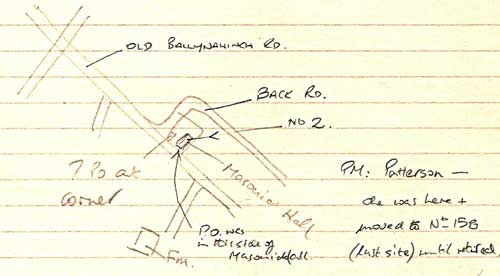 OLD BALLYNAHINCH RD.
BACK RD.
NO 2.
? PO at
corner
Masonic Hall
P.O. was
in this side of
Masonic Hall
Fm.
PM: Patterson —
she was here +
moved to No 15B
(last site) until retired.